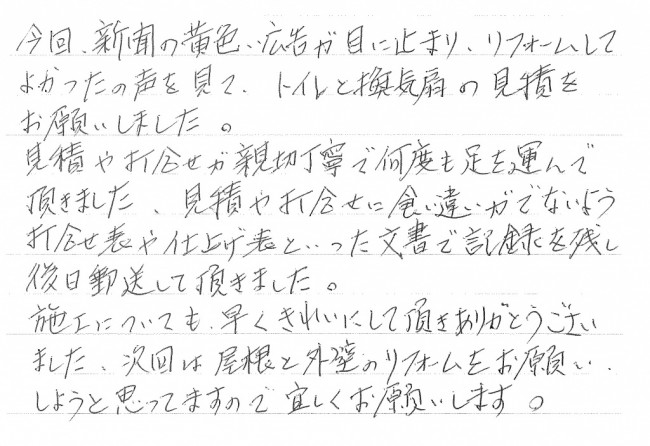 今回、新聞の黄色い広告が目に止まり、リフォームして
よかったの声を見て、トイレと換気扇の見積を
お願いしました。
見積や打合せが親切丁寧で何度も足を運んで
頂きました、見積や打合せに食い違いがでないよう
打合せ表や仕上げ表といった文書で記録を残し
後日郵送して頂きました。
施工についても、早くきれいにして頂きありがとうござい
ました、次回は屋根と外壁のリフォームをお願い、
しようと思ってますので宜しくお願いします。